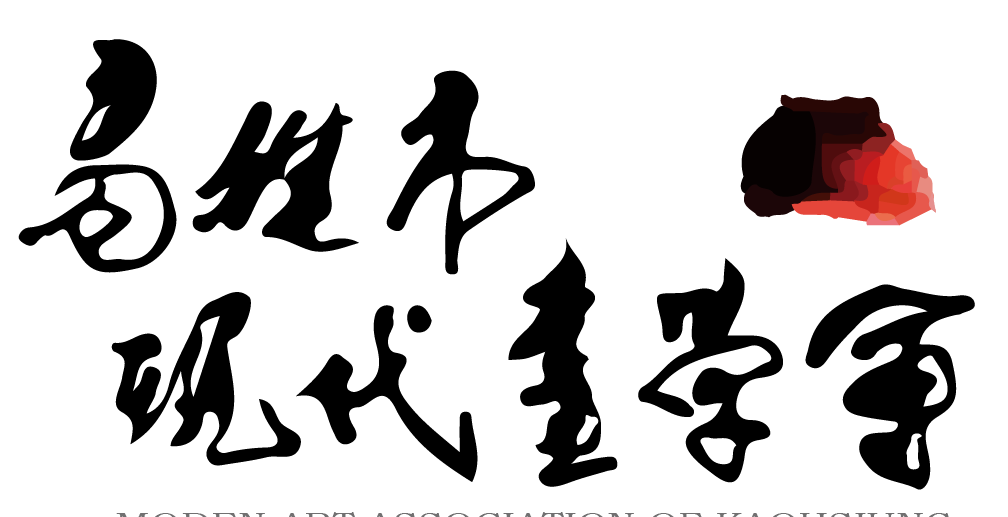 高雄市
現代畫學會
MODEN ART ASSOCIATION OF KAOHSIUNG